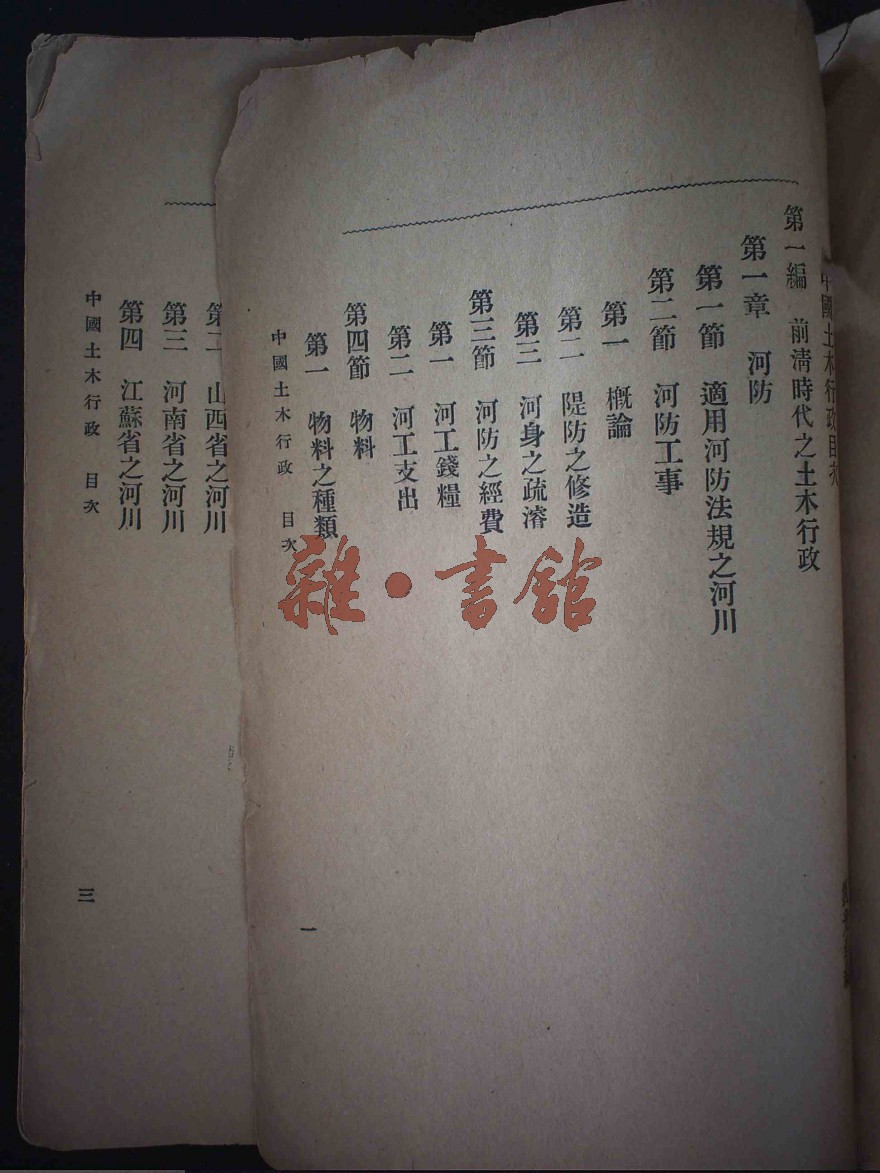 中國土木行政目次
第一編　前清時代之土木行政
第一章　河防
第一節　適用河防法規之河川
第二節　河防工事
第一　概論
第二　隄防之修造
第三　河身之疏濬
第三節　河防之經費
第一　河工錢糧
第二　河工支出
第四節　物料
第一　物料之種類
中國土木行政　目次
一
雜·書館
第二　山西省之河川
第三　河南省之河川
第四　江蘇省之河川
中國土木行政　目次
三